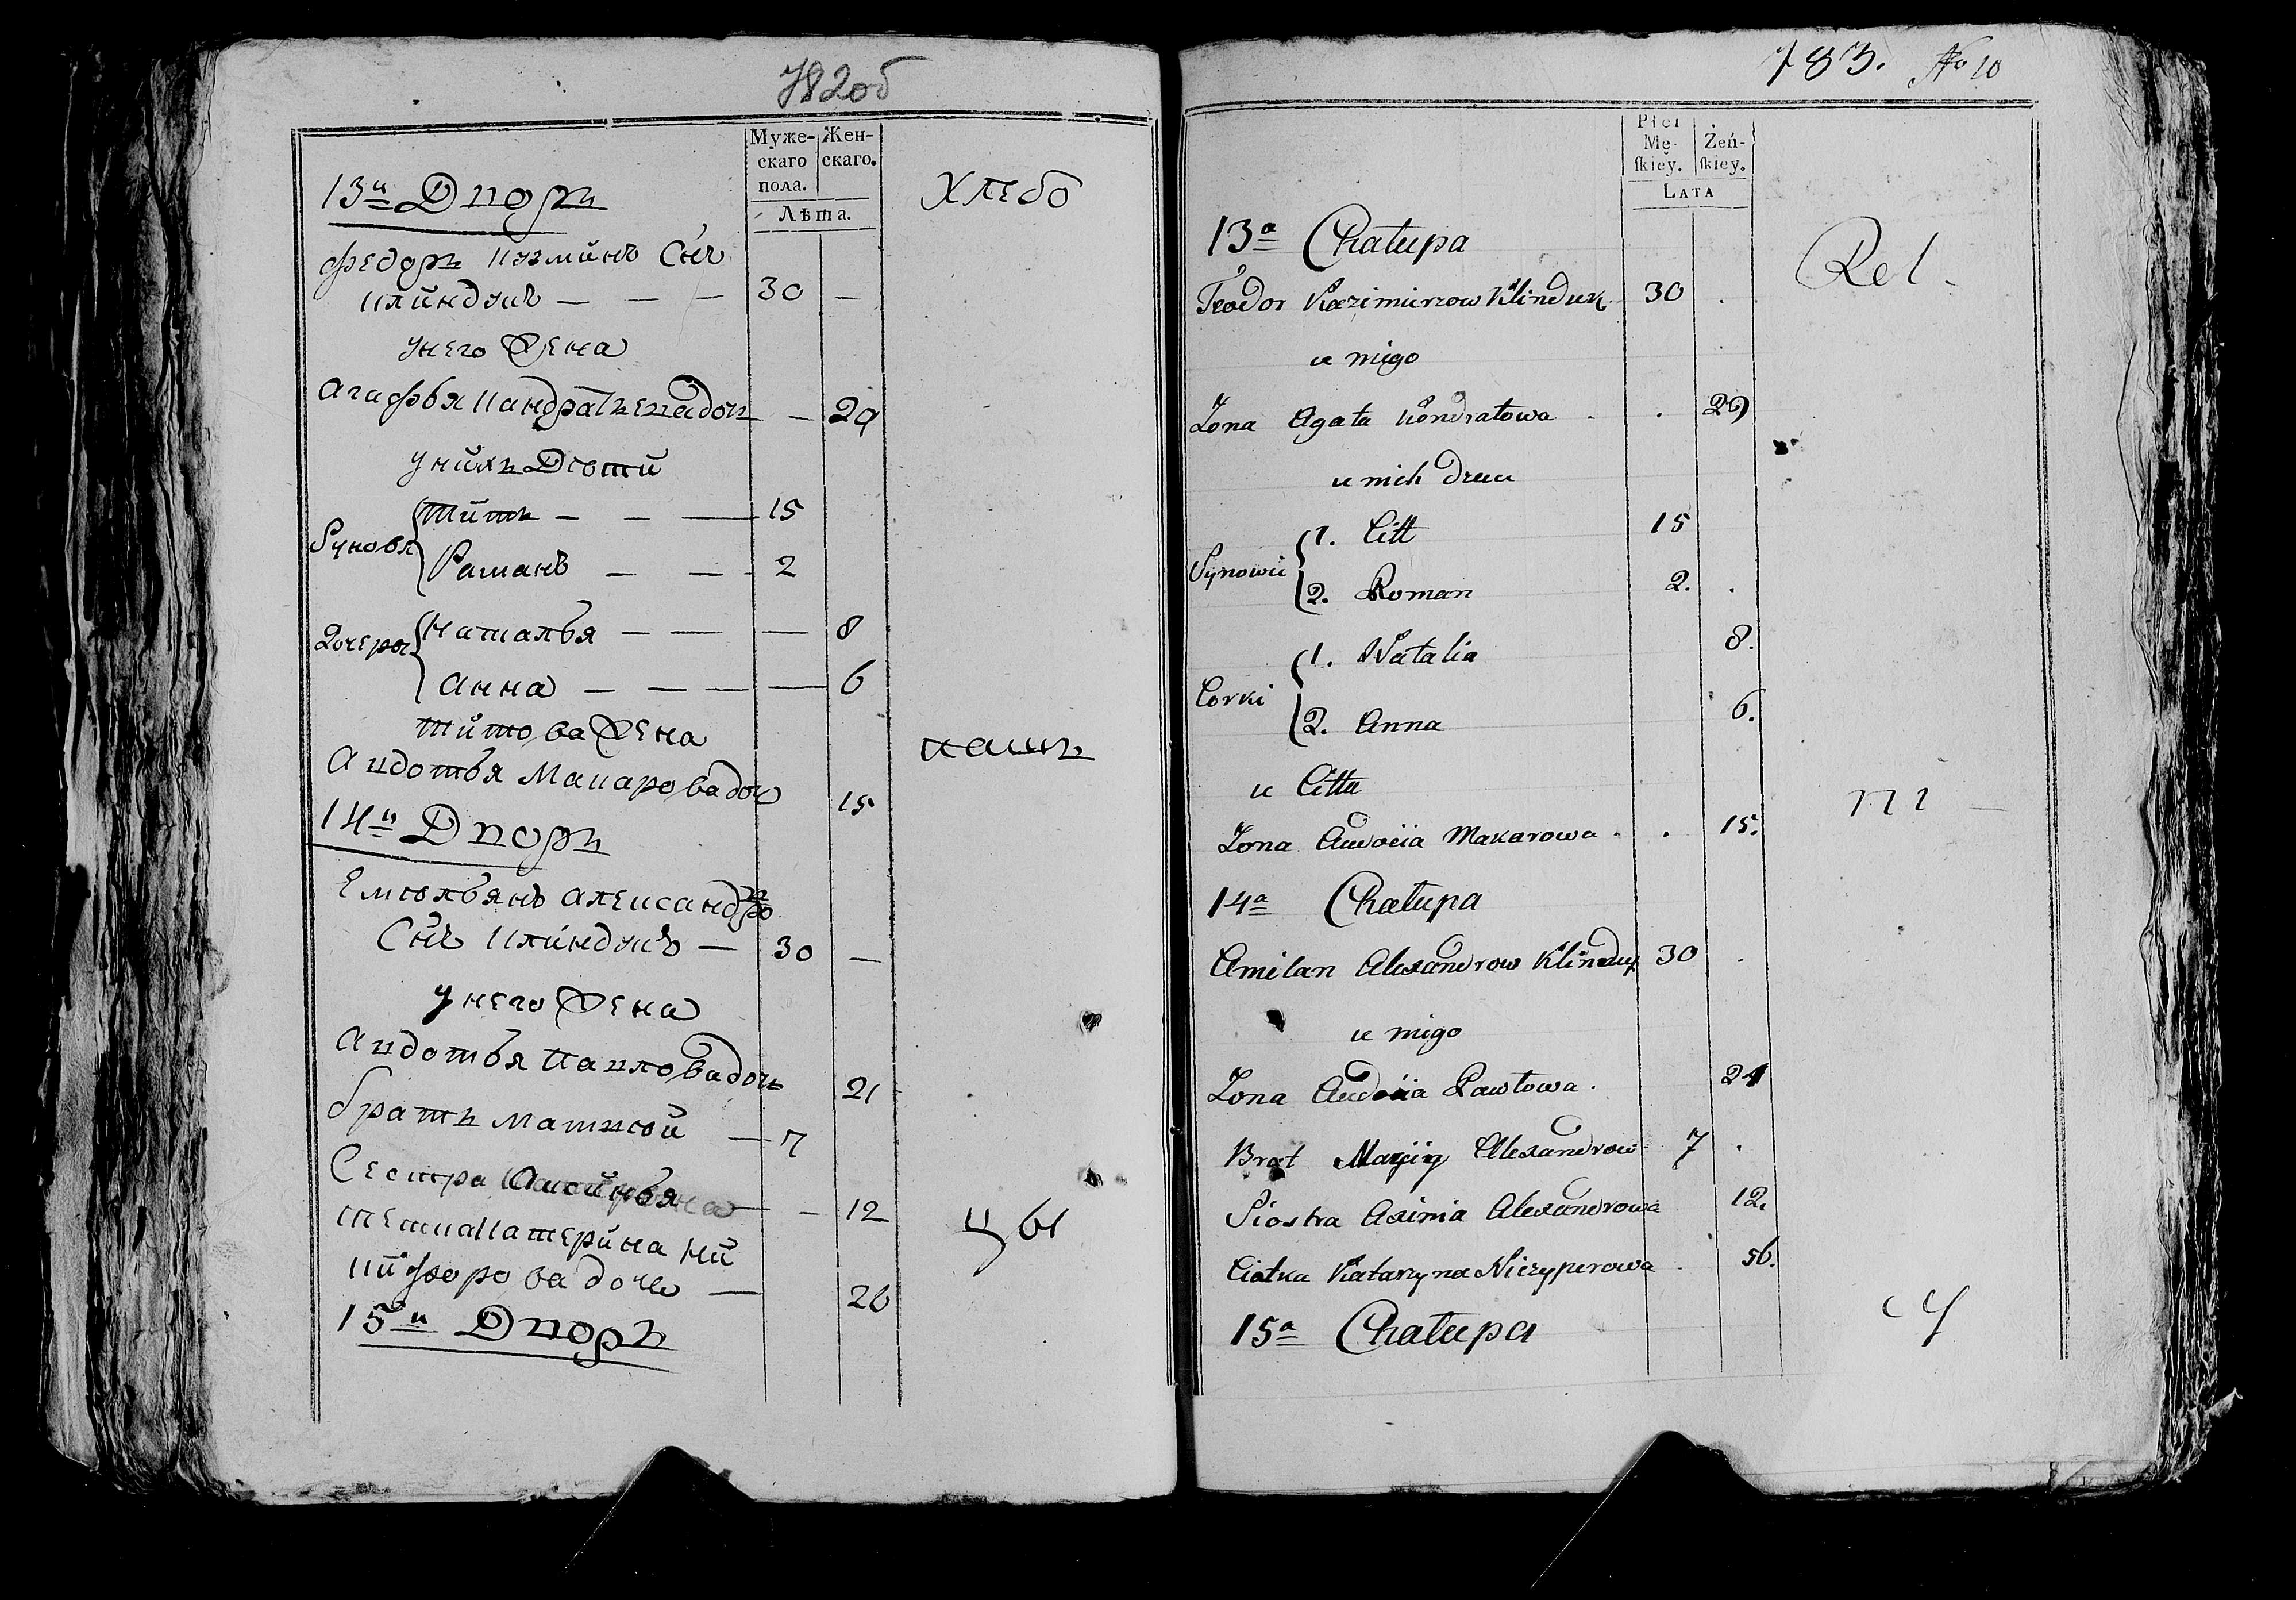 782об
Муже- Жен-
скаго скаго.
пола.
Лѣта.
13й Дворъ
Хлебо
Федоръ Кузминъ Снъ
Клиндукъ — — — 30 —
унего Жена
Агафья Кандратьевадочь — 29
унихъ Дѣти
Сыновья Титъ — — — 15
Раманъ — — — 2
Дочери Наталья — — — 8
Анна — — — — 6
Титова Жена
пашъ
Авдотья Макаровадочь 15
14й Дворъ
Емѣльянъ Александровъ
Снъ Клиндукъ — 30 —
унего Жена
Авдотья Павловадочь 21
братъ Матвѣй — 7
Сестра Аксинья — — 12
цы
тетка Катерина Ни
кифоровадочь — 26
15й Дворъ
783. No 10
Płci
Mę- Żeń-
ſkiey. ſkiey.
LATA
13a Chałupa
Rol.
Teodor Kazimirzow Klinduk 30 .
u niego
Zona Agata Kondratowa . . 29
u nich dzieci
Synowie 1. Citt 15
2. Roman 2. .
Corki 1. Natalia 8.
2. Anna 6.
u Citta
ni —
Zona Audocia Makarowa . . 15.
14a Chałupa
Amilan Alexandrow Klinduk 30 .
u niego
Zona Audocia Pawłowa . 21
Brat Alexandrow 7 .
Siostra Axinia Alexandrowa 12.
Ciotka Katarzyna Niczyperowa . 56.
cy
15a Chałupa